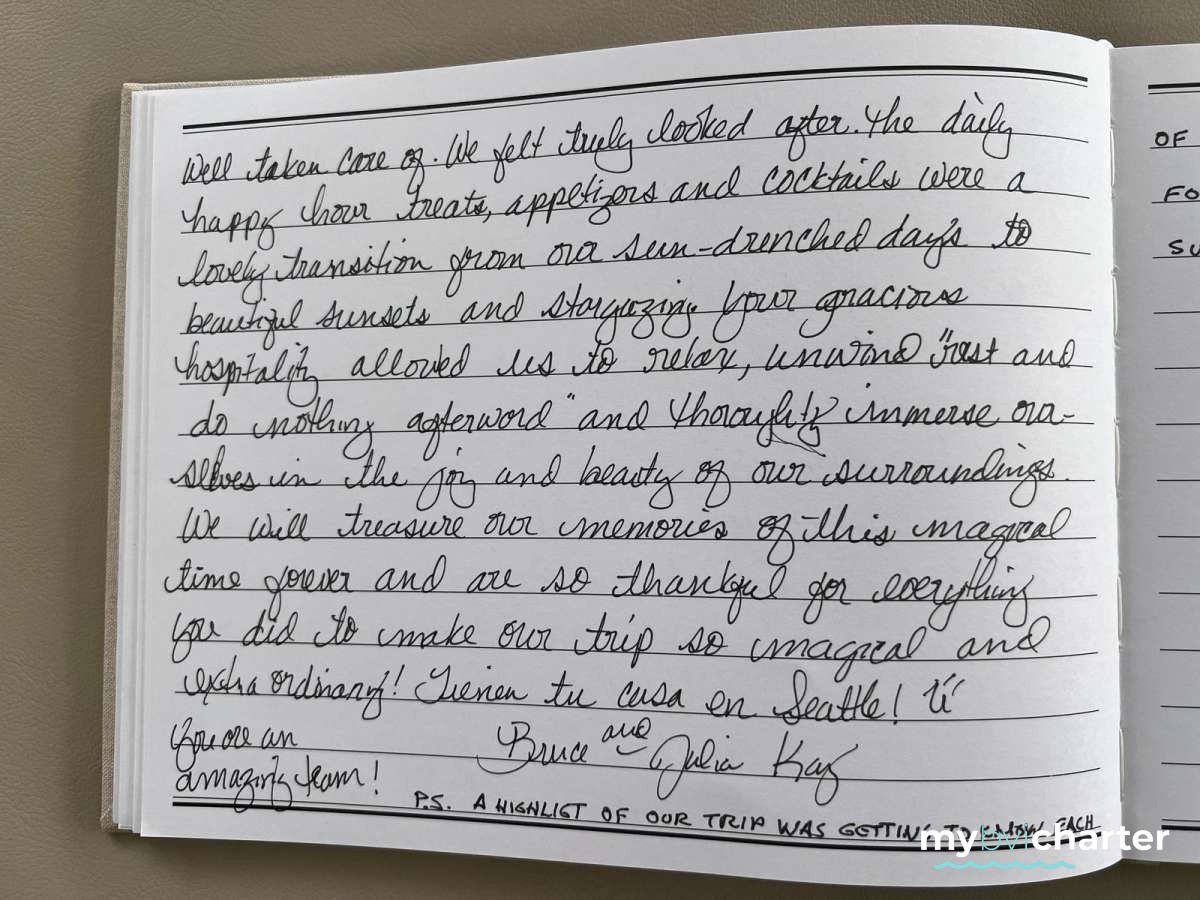 well taken care of. We felt truly looked after. The daily
happy hour treats, appetizers and cocktails were a
lovely transition from our sun-drenched days to
beautiful sunsets and stargazing. Your gracious
hospitality allowed us to relax, unwind "rest and
do nothing afterword" and thoroughly immerse our-
selves in the joy and beauty of our surroundings.
We will treasure our memories of this magical
time forever and are so thankful for everything
you did to make our trip so magical and
extraordinary! Tienen tu casa en Seattle!
You are an
amazing team!
Bruce and Julia Kay
P.S. A HIGHLIGT OF OUR TRIP WAS GETTING TO KNOW EACH
OF
FO
SU
mybvicharter